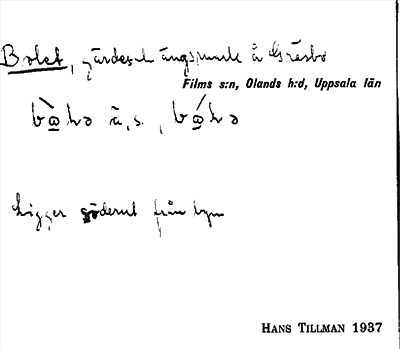 Bolet, gärdesch ängsmark å Gräsbo
Films s:n, Olands h:d, Uppsala län
ä, s.,
Ligger söderut från byn
HANS TILLMAN 1937